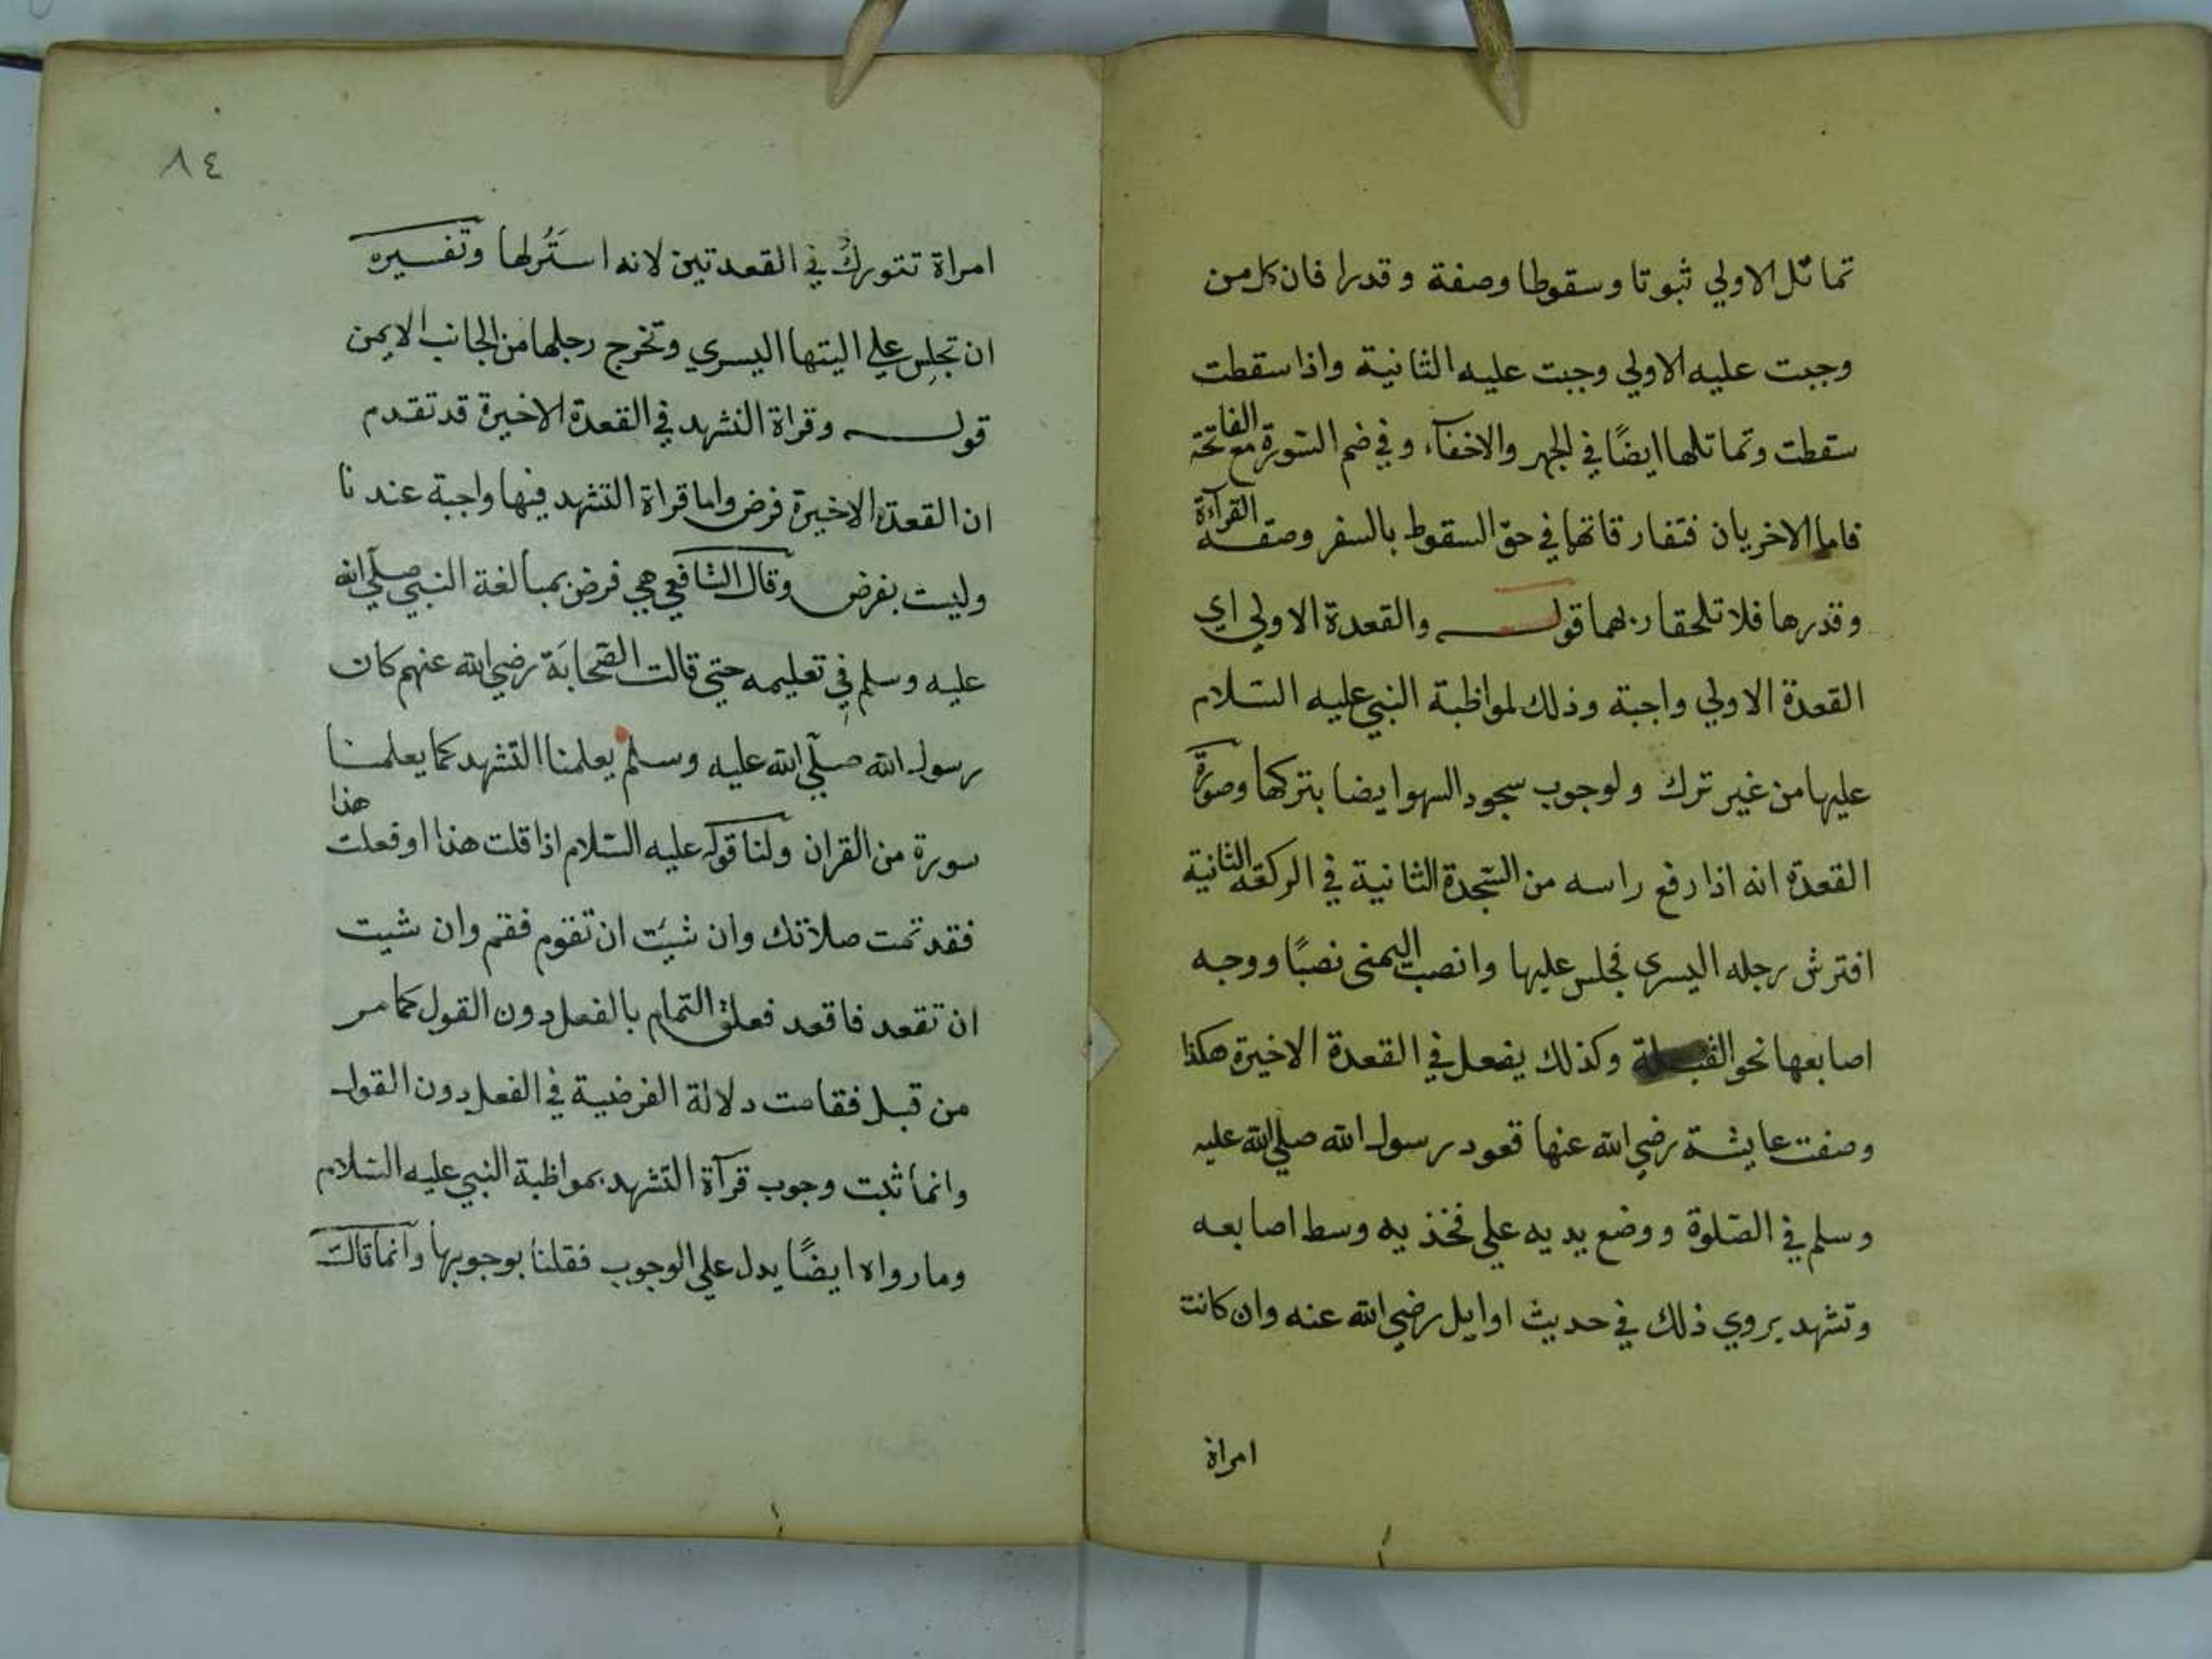 تماثل الاولي ثبوتا وسقوطا وصفة وقدرا فان كل من
وجبت عليه الاولي وجبت عليه الثانية واذا سقطت
سقطت وتماثلها ايضًا في الجهر والاخفآء وفي ضم السّورة مع الفاتحة
فاما الاخريان فتفارقانها في حق السقوط بالسفر وصفة القرآءة
وقدرها فلا تلحقان بهما قولـه والقعدة الاولي اي
القعدة الاولي واجبة وذلك لمواظبة النبي عليه السّلام
عليها من غير ترك ولوجوب سجود السهو ايضا بتركها وصورة
القعدة انه اذا رفع راسه من السّجدة الثانية في الركعة الثانية
افترش رجله اليسرى فجلس عليها وانصب اليمنى نصبًا ووجه
اصابعها نحو القبـلة وكذلك يفعل في القعدة الاخيرة هكذا
وصفت عايشة رضي الله عنها قعود رسول الله صلي الله عليه
وسلم في الصّلوة ووضع يديه علي فخذيه وسط اصابعه
وتشهد يروي ذلك في حديث اوايل رضي الله عنه وان كانت
امراة
٨٤
امراة تتورك في القعدتين لانه استَرُ لها وتفسيره
ان تجلس علي اليتها اليسري وتخرج رجلها من الجانب الايمن
قولـه وقراة التشهد في القعدة الاخيرة قد تقدم
ان القعدة الاخيرة فرض واما قراة التشهد فيها واجبة عندنا
وليست بفرض وقال الشافعي هي فرض بمبالغة النبي صلّي الله
عليه وسلم في تعليمه حتي قالت الصّحابَة رضي الله عنهم كان
رسول الله صلّي الله عليه وسلم يعلمنا التشهد كما يعلمنا
سورة من القران ولنا قوله عليه السّلام اذا قلت هذا او فعلت هذا
فقد تمت صلاتك وان شيت ان تقوم فقم وان شيت
ان تقعد فاقعد فعلق التمام بالفعل دون القول كما مر
من قبل فقامت دلالة الفرضية في الفعل دون القول
وانما ثبت وجوب قرآة التشهد بمواظبة النبي عليه السّلام
وما رواه ايضًا يدل علي الوجوب فقلنا بوجوبها وانما قالت